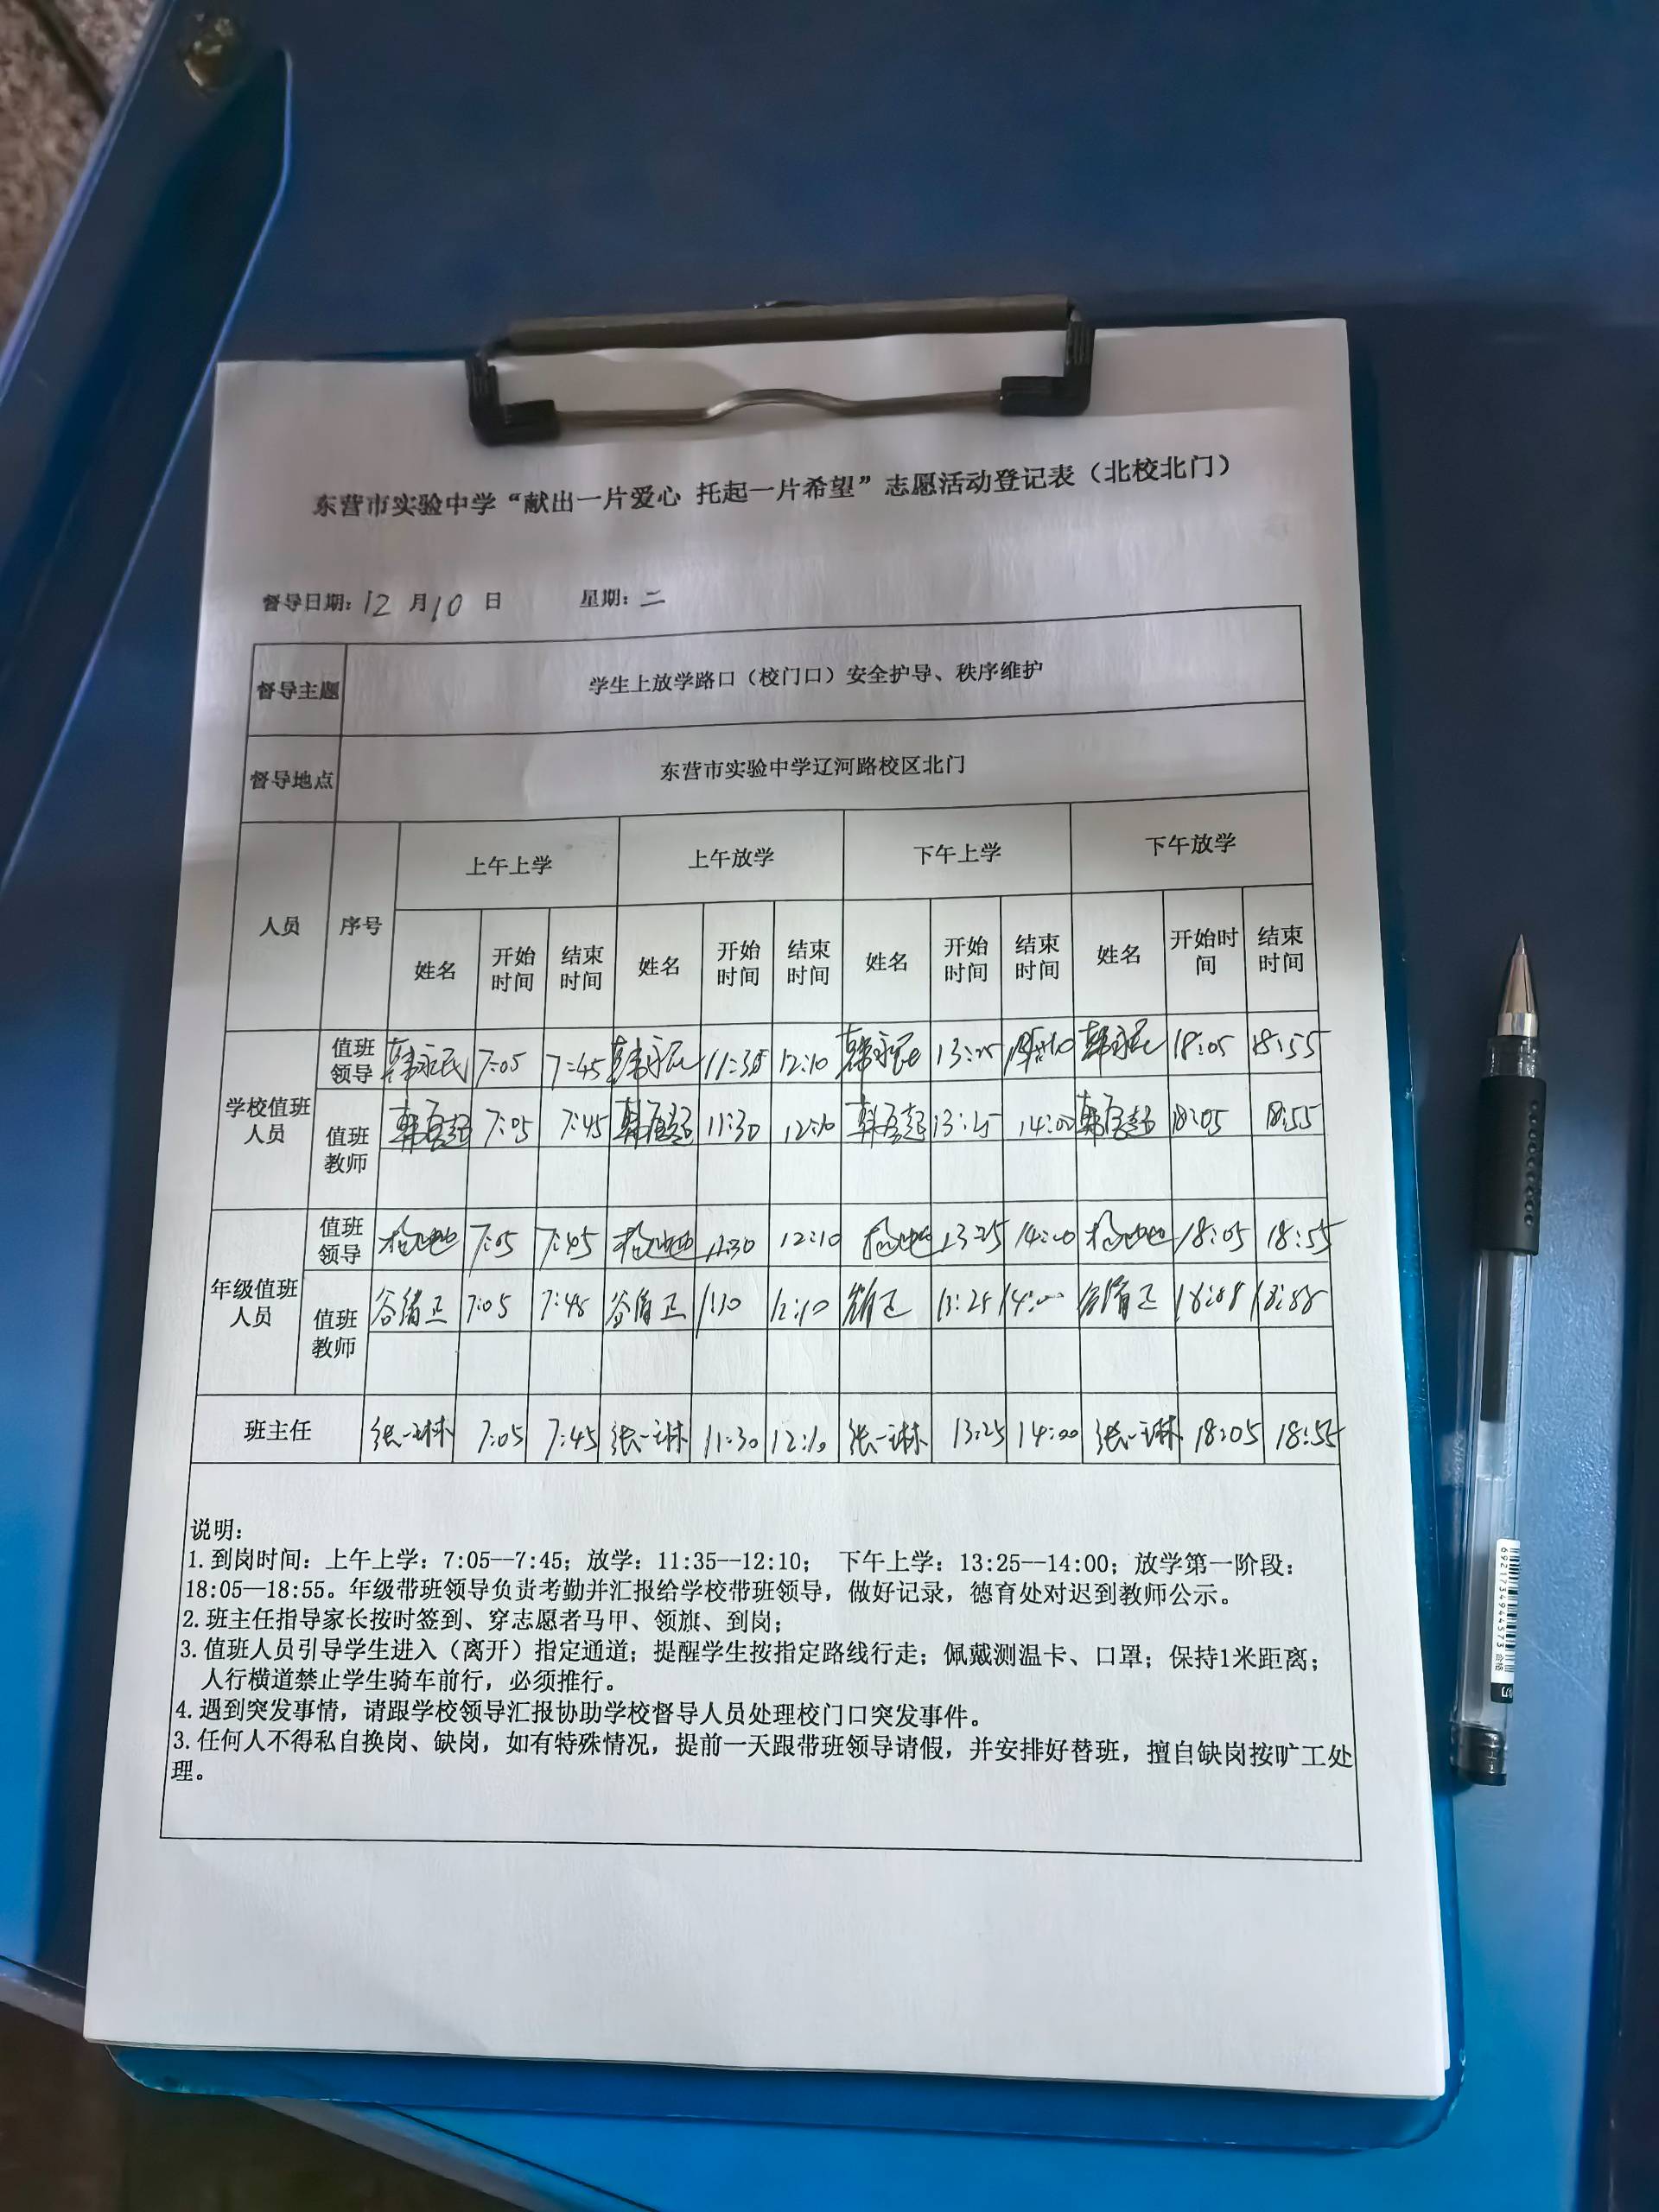 东营市实验中学“献出一片爱心 托起一片希望”志愿活动登记表（北校北门）
督导日期：12 月 10 日 星期：二
督导主题 学生上放学路口（校门口）安全护导、秩序维护
督导地点 东营市实验中学辽河路校区北门
人员 序号 上午上学 上午放学 下午上学 下午放学
姓名 开始时间 结束时间 姓名 开始时间 结束时间 姓名 开始时间 结束时间 姓名 开始时间 结束时间
学校值班人员
值班领导 韩永民 7:05 7:45 韩永民 12:10 韩永民 13:25 韩永民 18:05 18:55
值班教师 7:05 7:45 11:30 12:10 13:25 14:00 18:05 18:55
年级值班人员
值班领导 7:05 7:45 11:30 12:10 13:25 14:00 18:05 18:55
值班教师 谷绪正 7:05 7:45 12:10 13:25 14:00
班主任 张一琳 7:05 7:45 张一琳 11:30 12:10 张一琳 13:25 14:00 张一琳 18:05 18:55
说明：
1.到岗时间：上午上学：7:05--7:45；放学：11:35--12:10； 下午上学：13:25--14:00；放学第一阶段：
18:05—18:55。年级带班领导负责考勤并汇报给学校带班领导，做好记录，德育处对迟到教师公示。
2.班主任指导家长按时签到、穿志愿者马甲、领旗、到岗；
3.值班人员引导学生进入（离开）指定通道；提醒学生按指定路线行走；佩戴测温卡、口罩；保持1米距离；
人行横道禁止学生骑车前行，必须推行。
4.遇到突发事情，请跟学校领导汇报协助学校督导人员处理校门口突发事件。
3.任何人不得私自换岗、缺岗，如有特殊情况，提前一天跟带班领导请假，并安排好替班，擅自缺岗按旷工处
理。
6921734944573
合格